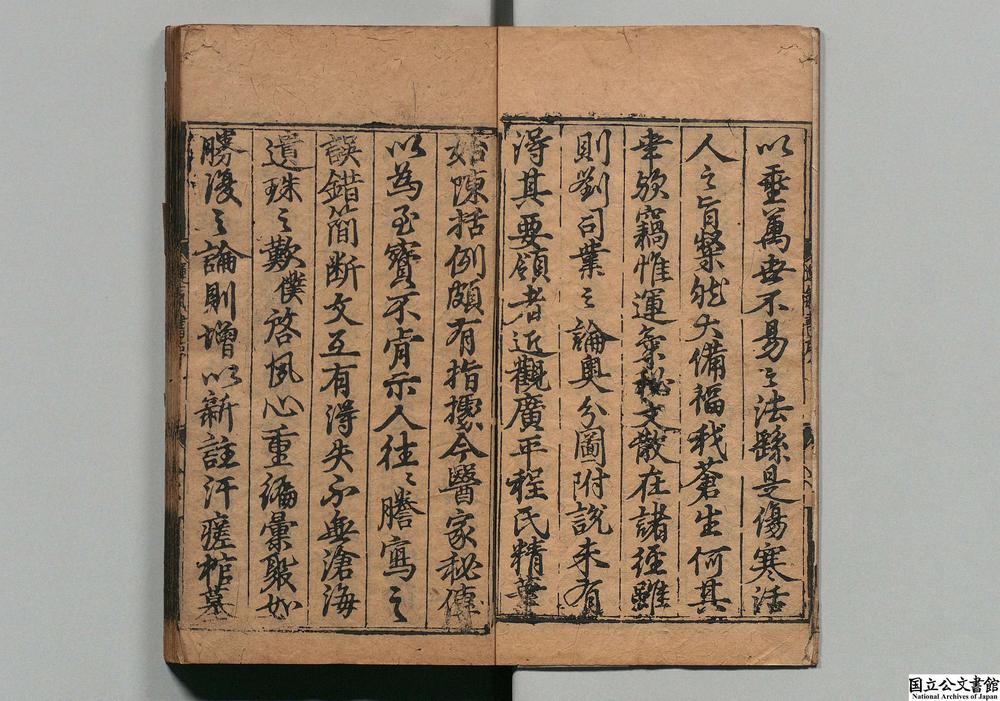 以垂萬世不易之法繇是傷寒活
人之旨粲然大備福我蒼生何其
幸歟竊惟運氣秘文散在諸經雖
則劉司業之論奥分圖附説未有
得其要領者近觀廣平程氏精華
始陳括例頗有指據今醫家秘傳
以為至寳不肯示人往〻謄寫之
誤錯簡断文互有得失不無滄海
遺珠之歎僕啓夙心重編彙聚如
勝復之論則增以新註汗瘥棺墓
国立公文書館
National Archives of Japan